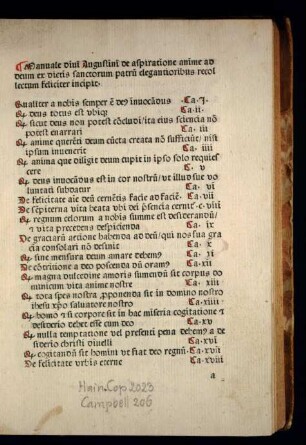 Manuale divi Augustini de aspiratione anime ad
deum ex dictis sanctorum patrũ elegantioribus recol
lectum feliciter incipit.
Qualiter a nobis semper ē deꝰ inuocãdus ·Ca·I·
Qꝫ deus totus est vbiqꝫ Ca·ii·
Qꝫ sicut deus non potest cõcludi/ita eius sciencia nõ
potest enarrari Ca· iii
Qꝫ anime querẽti deum cũcta creata nõ sufficiũt/ nisi
ipsum inuenerit Ca· iiii
Qꝫ anima que diligit deum cupit in ipso solo requies
cere C· v
Qꝫ deus inuocãdus est in cor nostrũ/vt illud sue vo
luntati subdatur Ca· vi
De felicitate aīe deũ cernētis facie ad faciē· Ca· vii
De sẽpiterna vita beata vbi dei p̄sencia cernit᷑·c·viii
Qꝫ regnum celorum a nobis summe est desiderandũ/
et vita precedens despicienda Ca· ix
De graciarũ actione habenda ad deũ/qui nos sua gra
cia consolari nõ desinit Ca· x
Qꝫ sine mensura deum amare debemꝰ Ca· xi
De cõtritione a deo poscenda dũ oramꝰ Ca·xii
Qꝫ magna dulcedine amoris sumendũ sit corpus do
minicum vita anime nostre Ca·xiii
Qꝫ tota spes nostra p̱ponenda sit in domino nostro
ihesu xp̃o saluatore nostro Ca·xiiii·
Qꝫ homo ꝛ si corpore sit in hac miseria cogitatione ꝛ
desiderio debet esse cum deo Ca·xv·
Qꝫ nulla temptatione vel presenti pena debemꝰ a de
siderio christi diuelli Ca·xvi
Qꝫ cogitandũ sit homini vt fiat deo regnũ· Ca·xvii
De felicitate vrbis eterne Ca·xviii
a
Hain.Cop 2023
Campbell 206